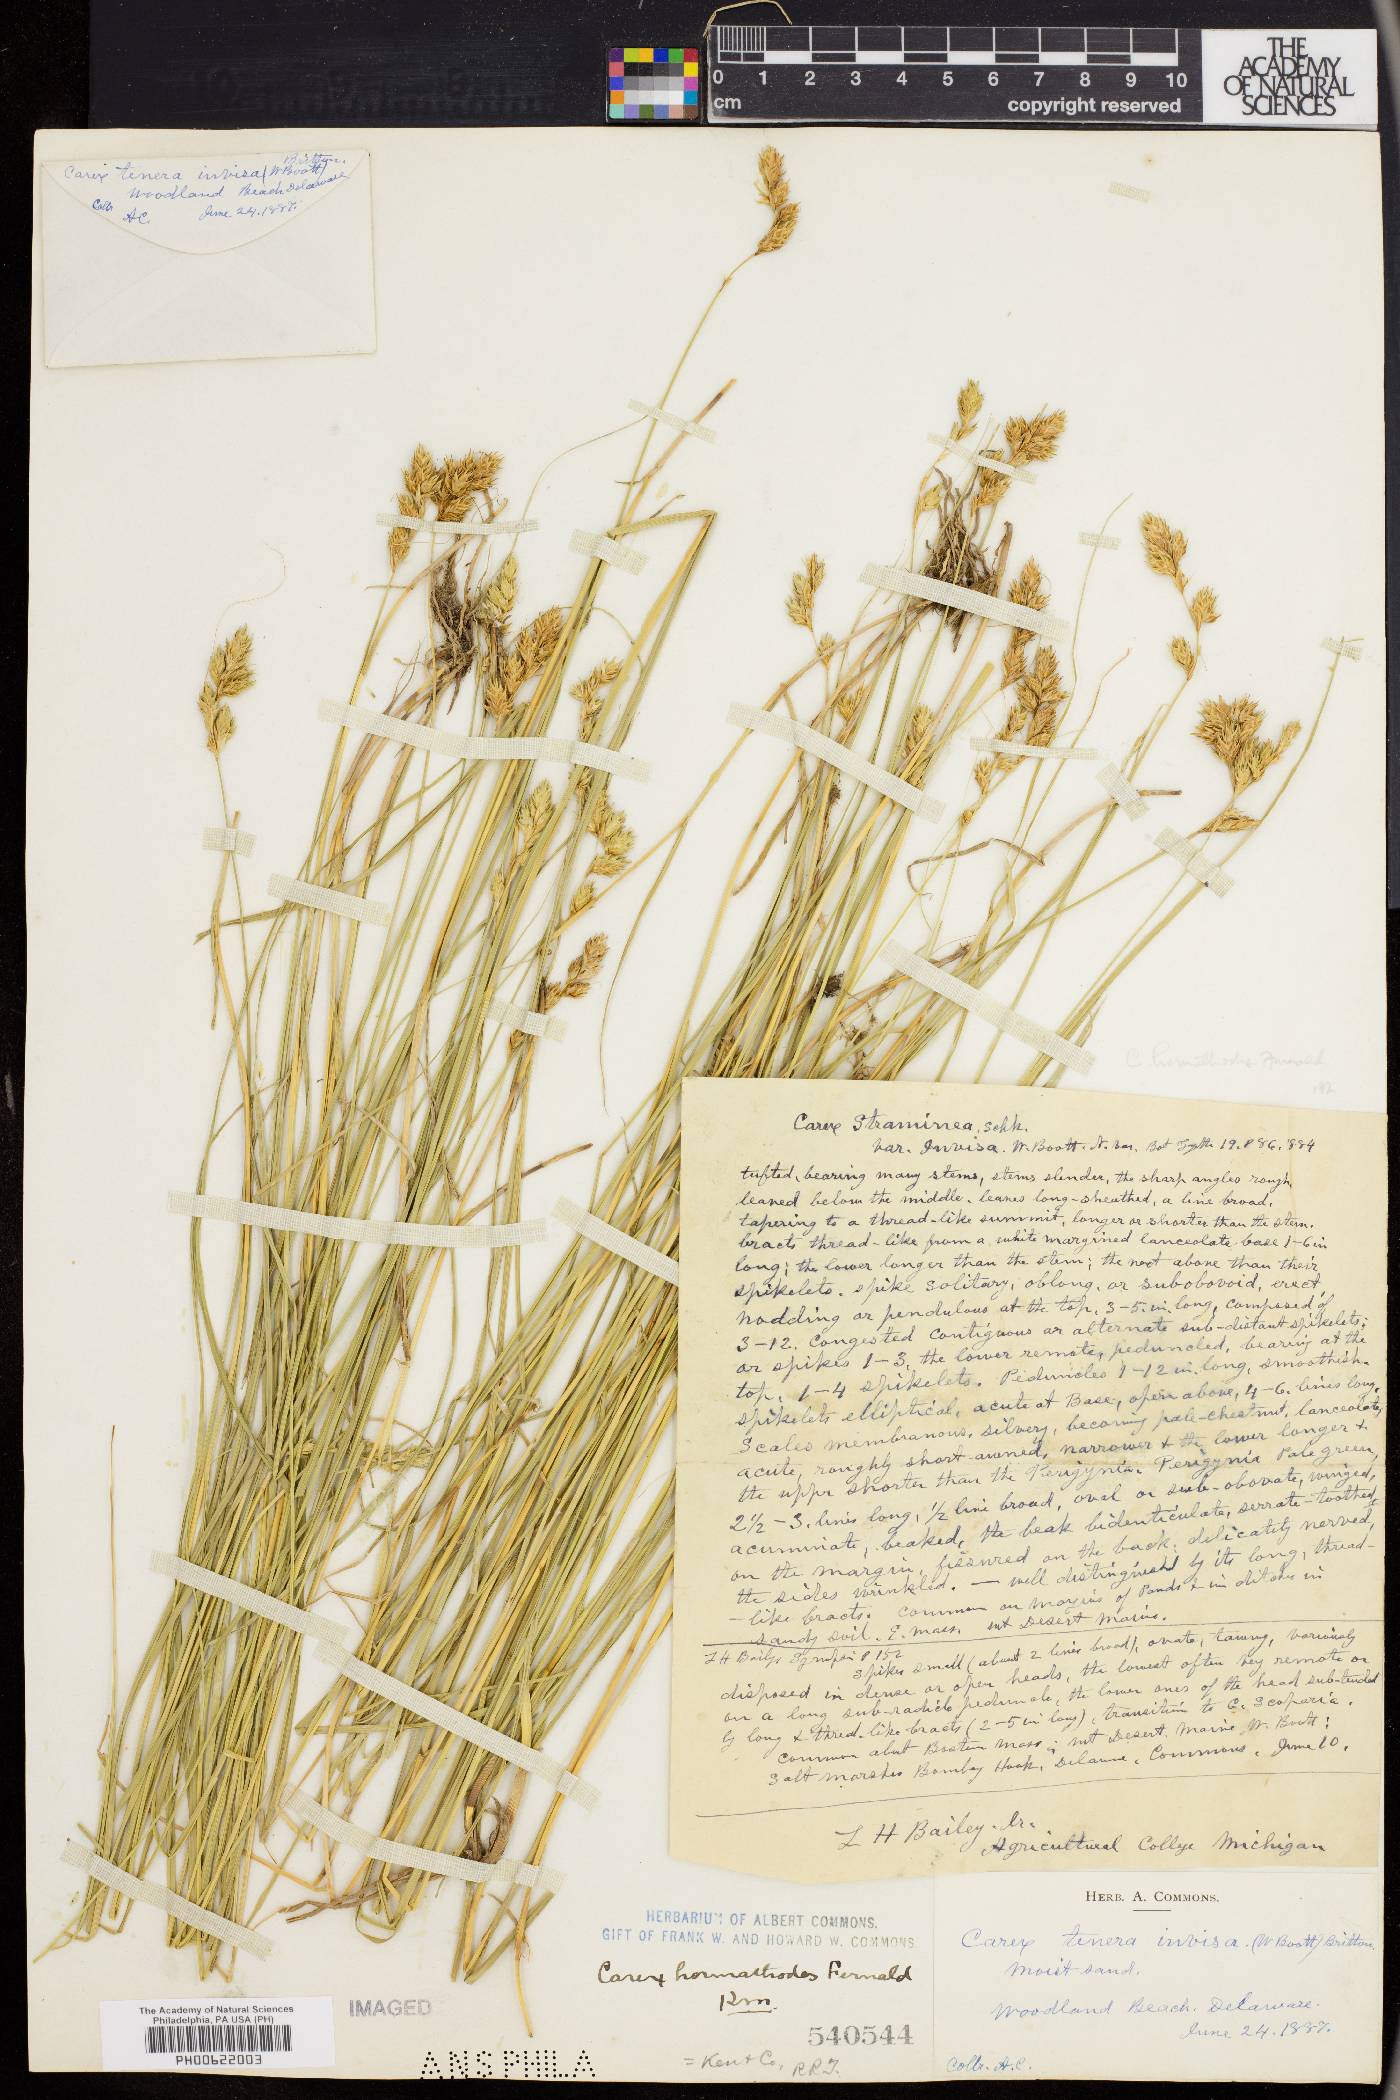 0 1 2 3 4 5 6 7 8 9 10
cm
copyright reserved
THE
ACADEMY
OF NATURAL
SCIENCES
Britton.
Carex tenera invisa (W Boott)
Woodland Beach Delaware
Coll. A C. June 24. 1887.
C hormathodes Fernald
Carex Straminea, Schk.
var. Invisa. W. Boott. N. var. Bot 19. P 86. 1884
tufted, bearing many stems, stems slender, the sharp angles rough,
leaved below the middle. leaves long-sheathed, a line broad,
tapering to a thread-like summit, longer or shorter than the stem.
bracts thread-like from a white margined lanceolate base 1-6 in
long; the lower longer than the stem; the next above than their
spikelets. spike solitary, oblong, or subobovoid, erect
nodding or pendulous at the top, 3-5 in. long, composed of
3-12. congested contiguous or alternate sub-distant spikelets;
or spikes 1-3, the lower remote, peduncled, bearing at the
top, 1-4 spikelets. Peduncles 1-12 in. long, smoothish.
spikelets elliptical, acute at Base, open above, 4-6. lines long,
Scales membranous, silvery, becoming pale-chestnut, lanceolate,
acute, roughly short-awned, narrower & the lower longer &
the uppr shorter than the Perigynia. Perigynia Pale green,
2 1/2 - 3. lines long, 1/2 line broad, oval or sub-obovate, winged,
acuminate, beaked, the beak bidenticulate, serrate-toothed
on the margin, fissured on the back, delicately nerved,
the sides wrinkled. — well distinguised by its long, thread-
-like bracts. Common on margins of Ponds & in ditches in
sandy soil. E. Mass. Mt Desert Maine.
L H Baileys Synopsi P 152
Spikes small (about 2 lines broad), ovate, tawny, variously
disposed in dense or open heads, the lowest often very remote or
on a long sub-radicle peduncle, the lower ones of the head sub-tended
by long & thred-like bracts (2-5 in long), transition to C. Scoparia.
Common about Boston Mass; Mt Desert. Maine W. Boott;
Salt marshes Bombay Hook, Delaware, Commons. June 10.
L H Bailey. Jr.
Agricultural College Michigan
HERB. A. COMMONS.
Carex tenera invisa. (W Boott) Britton.
Moist sand.
Woodland Beach. Delaware.
June 24. 1887.
Collr. A.C.
HERBARIUM OF ALBERT COMMONS.
GIFT OF FRANK W. AND HOWARD W. COMMONS
Carex hormathodes Fernald
KM.
540544
= Kent Co. R.R.T.
The Academy of Natural Sciences
Philadelphia, PA USA (PH)
PH00622003
IMAGED
ANS PHILA